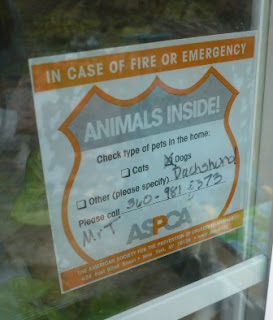 IN CASE OF FIRE OR EMERGENCY
ANIMALS INSIDE!
Check type of pets in the home:
Cats Dogs
Dachshund
Other (please specify)
Please call 360-981-
Mr T
ASPCA
THE AMERICAN SOCIETY FOR THE PREVENTION OF CRUELTY TO ANIMALS